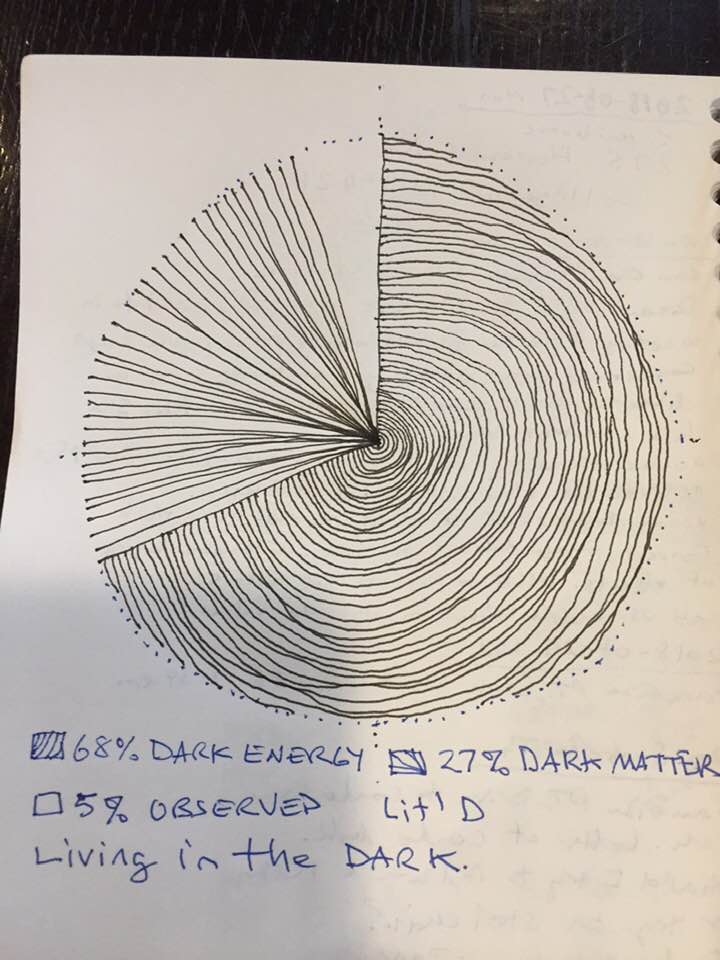 68% DARK ENERGY 27% DARK MATTER
5% OBSERVED Lit'D
Living in the DARK.